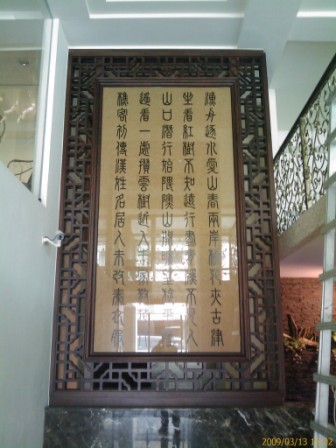 漁舟逐水愛山春兩岸桃花夾古津
坐看紅樹不知遠行盡青溪不見人
山口潛行始隈隩山開曠望旋平陸
遙看一處攢雲樹近入千家散花竹
樵客初傳漢姓名居人未改秦衣服
2009/03/13